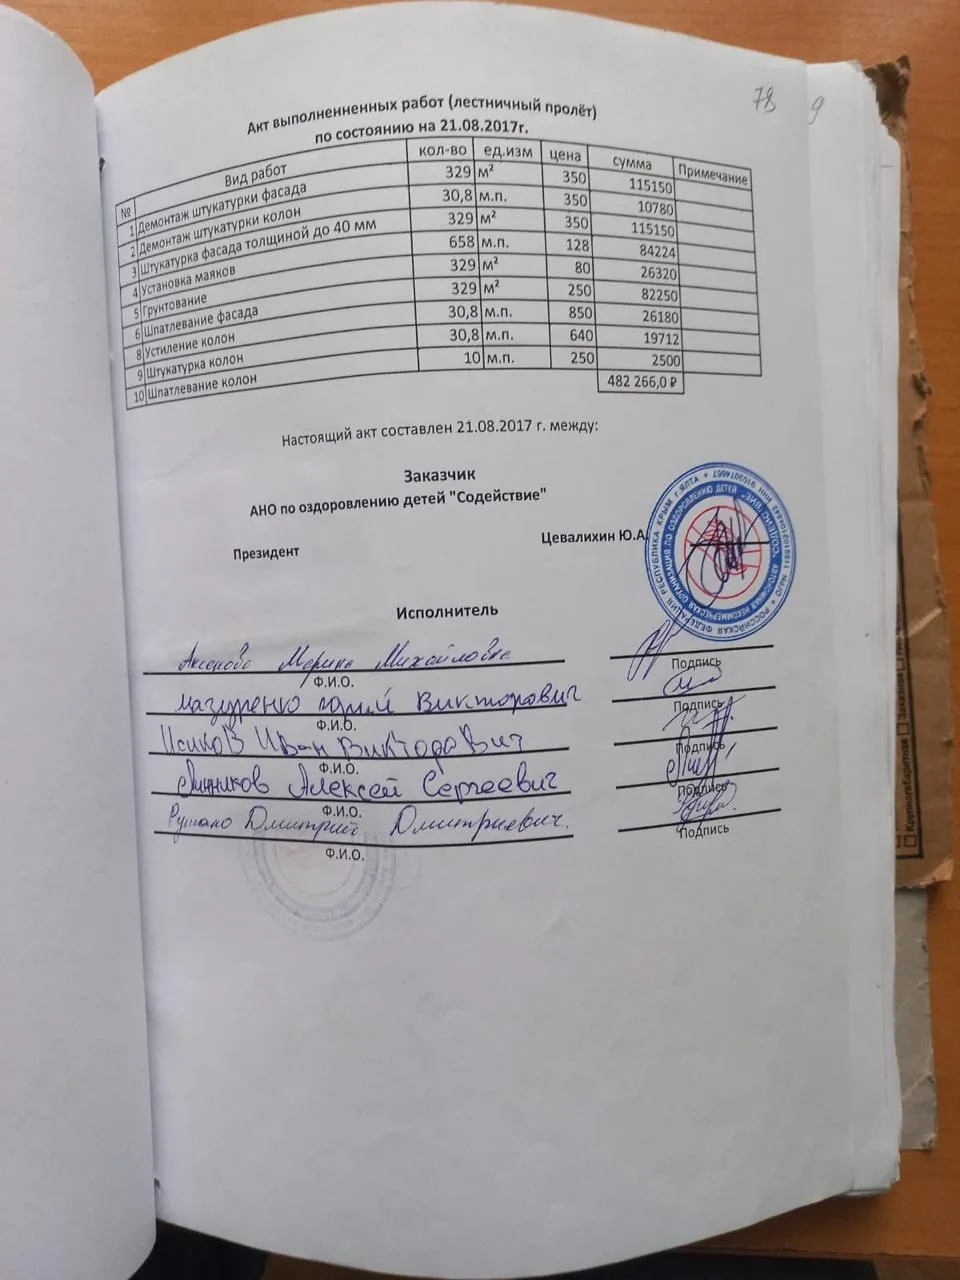 78 9
Акт выполненненных работ (лестничный пролёт)
по состоянию на 21.08.2017г.
№ Вид работ кол-во ед.изм цена сумма Примечание
1 Демонтаж штукатурки фасада 329 м² 350 115150
2 Демонтаж штукатурки колон 30,8 м.п. 350 10780
3 Штукатурка фасада толщиной до 40 мм 329 м² 350 115150
4 Установка маяков 658 м.п. 128 84224
5 Грунтование 329 м² 80 26320
6 Шпатлевание фасада 329 м² 250 82250
8 Устиление колон 30,8 м.п. 850 26180
9 Штукатурка колон 30,8 м.п. 640 19712
10 Шпатлевание колон 10 м.п. 250 2500
482 266,0 ₽
Настоящий акт составлен 21.08.2017 г. между:
Заказчик
АНО по оздоровлению детей "Содействие"
Президент Цевалихин Ю.А.
РОССИЙСКАЯ ФЕДЕРАЦИЯ РЕСПУБЛИКА КРЫМ г. ЯЛТА
АВТОНОМНАЯ НЕКОММЕРЧЕСКАЯ ОРГАНИЗАЦИЯ ПО ОЗДОРОВЛЕНИЮ ДЕТЕЙ «СОДЕЙСТВИЕ»
Исполнитель
Аксенова Марина Михайловна
Ф.И.О. Подпись
Мазуренко Викторович
Ф.И.О. Подпись
Исиков Иван Викторович
Ф.И.О. Подпись
Линников Алексей Сергеевич
Ф.И.О. Подпись
Дмитрий Дмитриевич.
Ф.И.О. Подпись
Крупногабаритная Заказная